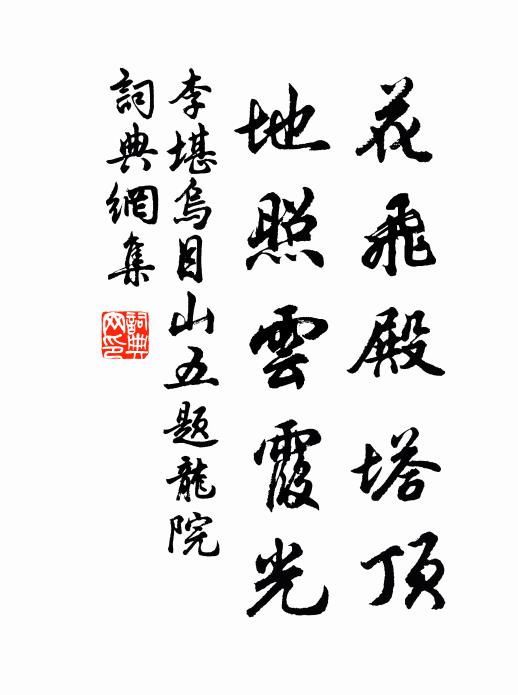 花飛殿塔頂
地照雲霞光
李堪烏目山五題龍院
詞典網集
詞典網印